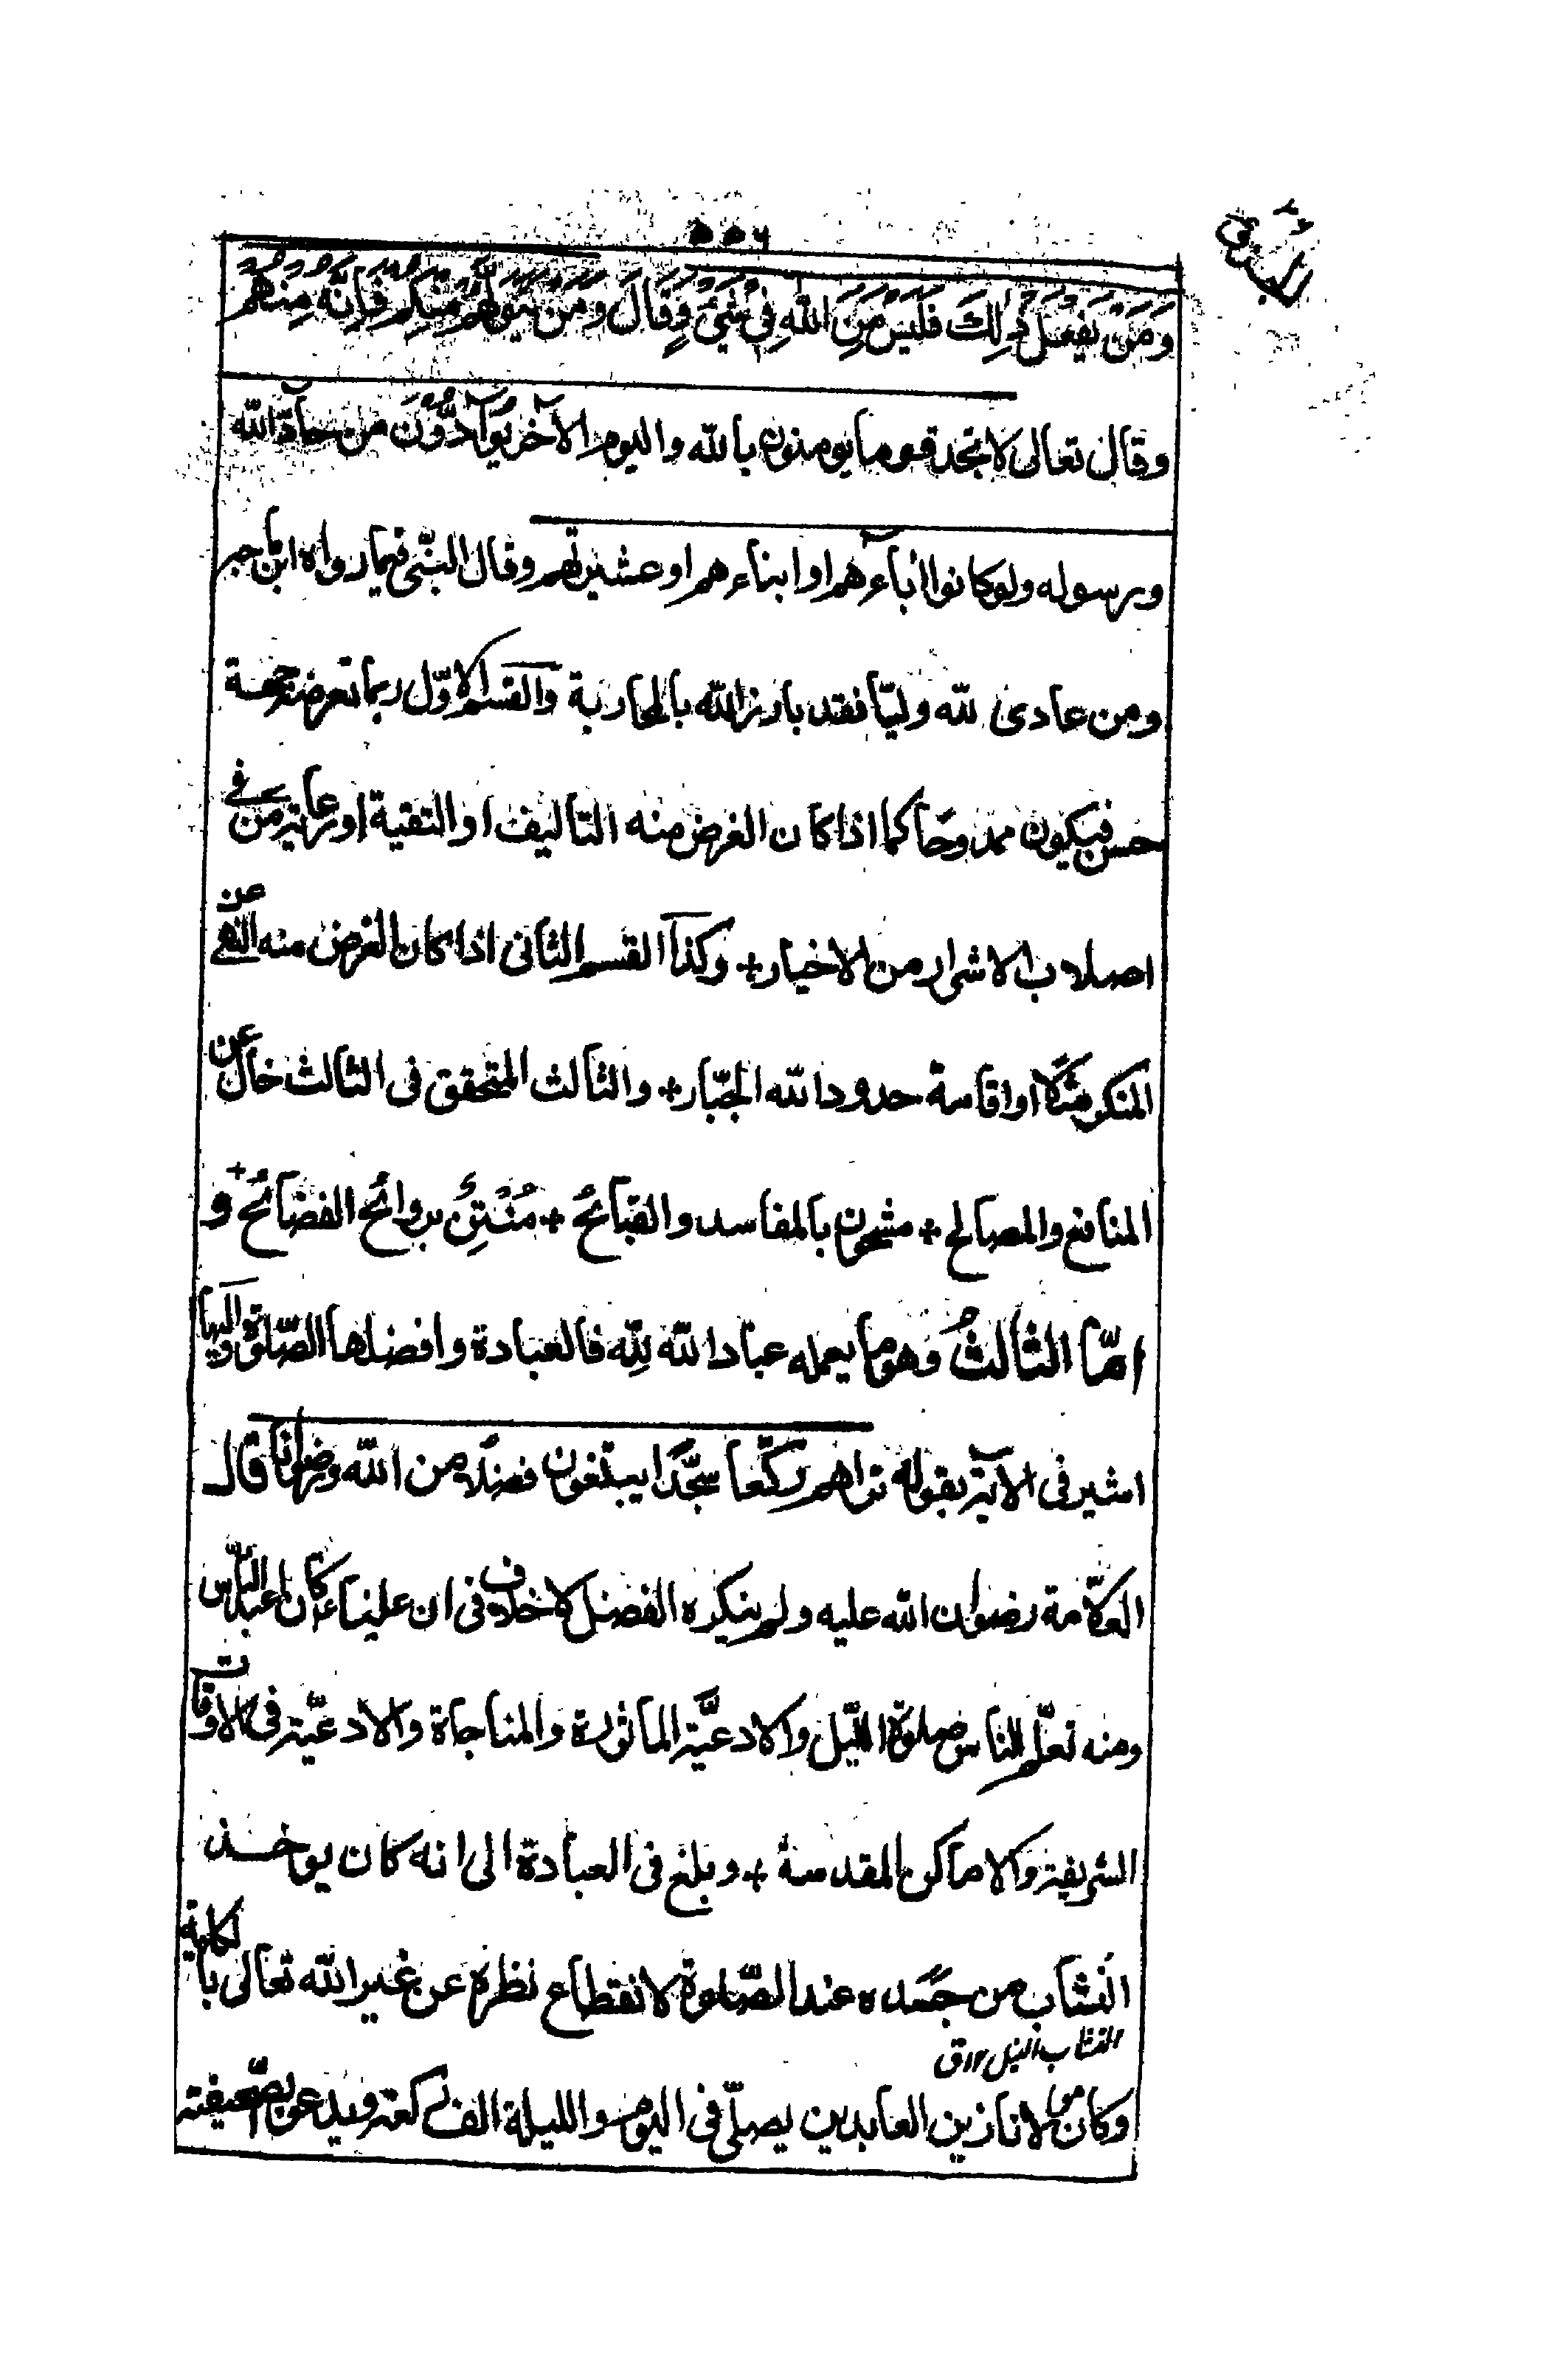 ۵۵۶
وَمَنْ يَفْعَلْ ذٰلِكَ فَلَيْسَ مِنَ اللّٰهِ فِىْ شَىْءٍ وَقَالَ وَمَنْ يَتَوَلَّهُمْ مِنْكُمْ فَاِنَّهُ مِنْهُمْ
وقال تعالى لا تجد قوما يومنون بالله واليوم الآخر يُوَآدُّوْنَ من حآدّ الله
ورسوله ولو كانوا اٰباءهم او ابناءهم او عشيرتهم وقال النبىّ فيما رواه ابن حجر
ومن عادى لله وليّا فقد بارز الله بالمحاربة والقسم الاوّل ربما تعرضه جهة
حسن فيكون ممدوحا كما اذا كان الغرض منه التاليف او التقية او رعاية من فى
اصلاب الاشرار من الاخيار + وكذا القسم الثانى اذا كان الغرض منه النهى عن
المنكر مثلا او اقامة حدود الله الجبّار + والثالث المتحقق فى الثالث خال عن
المنافع والمصالح + مشحون بالمفاسد والقبائح + مُنْتِنٌ بروائح الفضائح + و
امّا الثالثُ وهو ما يعمله عباد الله لِلّه فالعبادة وافضلها الصّلوة واليها
اشير فى الآية بقوله تراهم ركّعا سجّدا يبتغون فضلًا من الله ورضوانا قال
العلامة رضوان الله عليه ولم ينكره الفضل لا خلاف فى ان عليّا ع كان اعبد النّاس
ومنه تعلّم الناس صلوة اللّيل والادعيَّة الماثورة والمناجاة والادعيّة فى الاوقات
الشريفة والاماكن المقدسة + وبلغ فى العبادة الى انه كان يوخذ
النشاب من جسَده عند الصّلوة لانقطاع نظره عن غير الله تعالى بالكلية
النشاب النبل ۱۲ ق
وكان مولانا زين العابدين يصلّى فى اليوم والليلة الف ركعة ويدعو بصحيفته